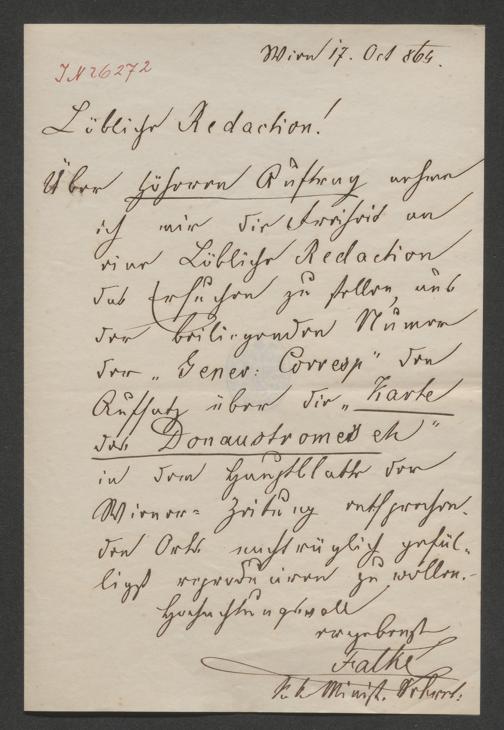 Wien 17. Oct 864.
IN 26272
Löbliche Redaction!
Über höheren Auftrag nehme
ich mir die Freiheit an
eine Löbliche Redaction
das Ersuchen zu stellen, aus
der beiliegenden Numer
der „Gener: Corresp" den
Aufsatz über die „Karte
des Donaustromes etc"
in dem Hauptblatte der
Wiener= Zeitung entsprechen-
den Orts nachträglich gefäl-
ligst reproduciren zu wollen.-
Hochachtungsvoll
ergebenst
Falke
k k Minist. Sekret: